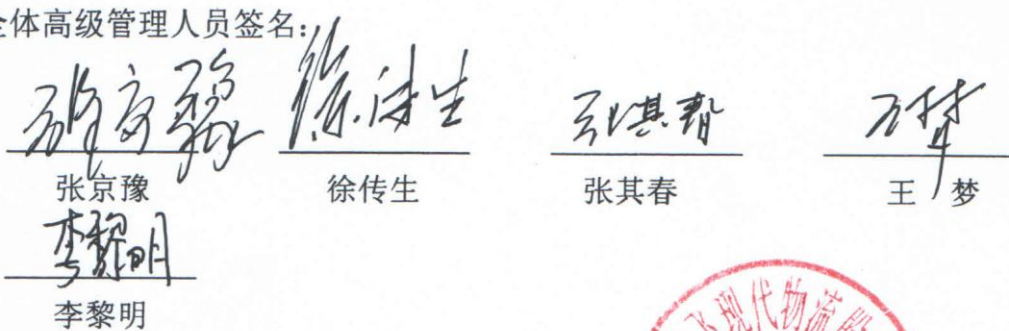 全体高级管理人员签名：
张京豫 徐传生 张其春 王梦
张京豫 徐传生 张其春 王 梦
李黎明
李黎明
飞现代物流股